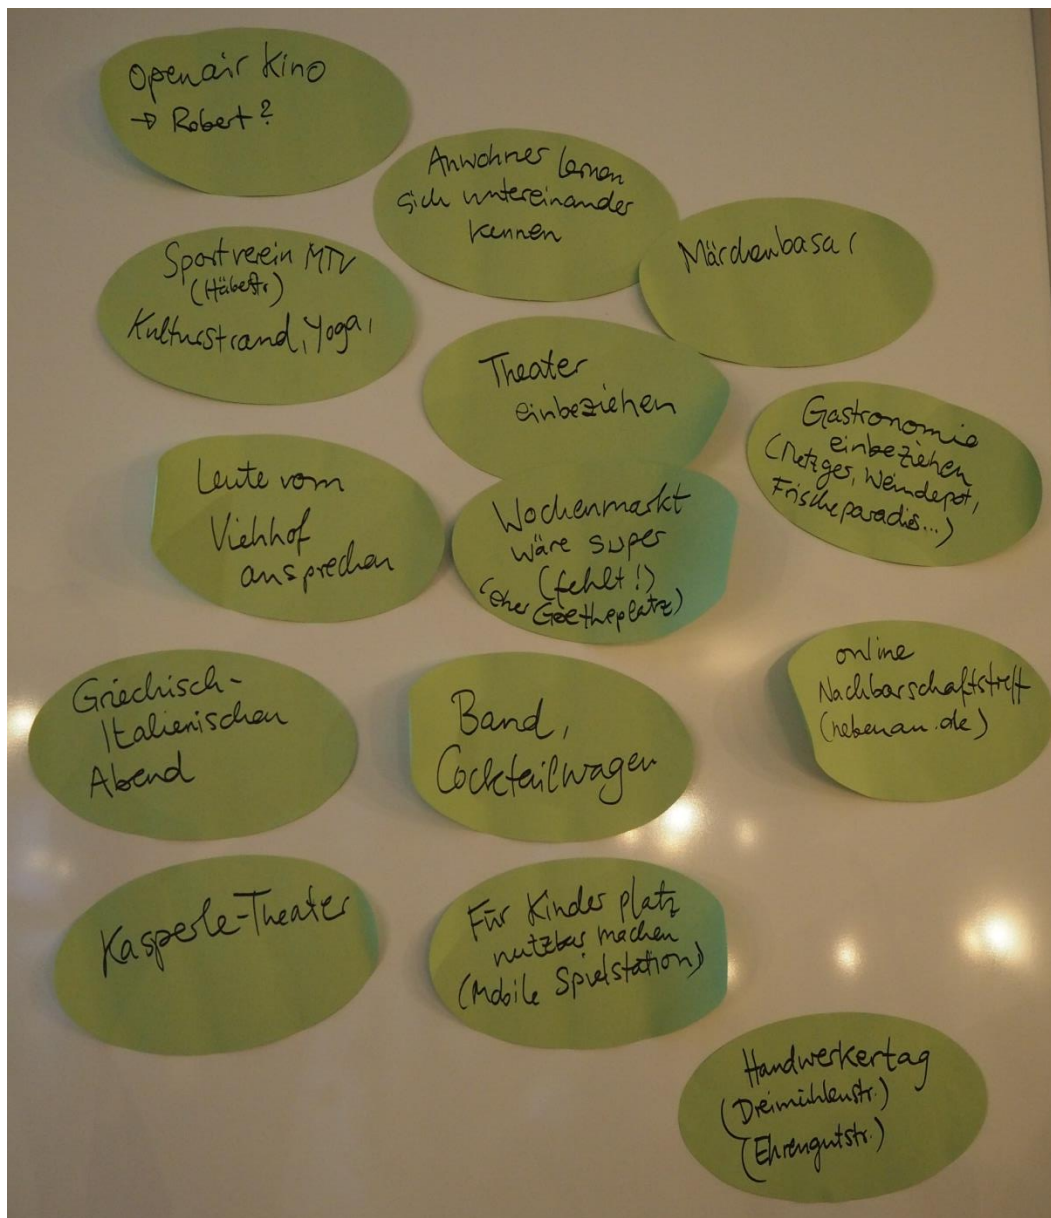 Openair Kino
→ Robert?
Anwohner lernen
sich untereinander
kennen
Märchenbasar
Sportverein MTV
(Häbestr)
Kulturstrand, Yoga,
Theater
einbeziehen
Gastronomie
einbeziehen
(Metzger, Weindepot,
Frischeparadis...)
Leute vom
Viehhof
ansprechen
Wochenmarkt
wäre super
(fehlt!)
(eher Goetheplatz)
online
Nachbarschaftstreff
(nebenan.de)
Griechisch-
Italienischen
Abend
Band,
Cocktailwagen
Kasperle-Theater
Für Kinder platz
nutzbar machen
(Mobile Spielstation)
Handwerkertag
(Dreimühlenstr.)
(Ehrengutstr.)